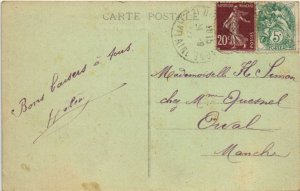 CARTE POSTALE
Bons baisers à tous.
Mademoiselle H. Simon
chez Mme Quesnel
Orval
Manche
20c
5c